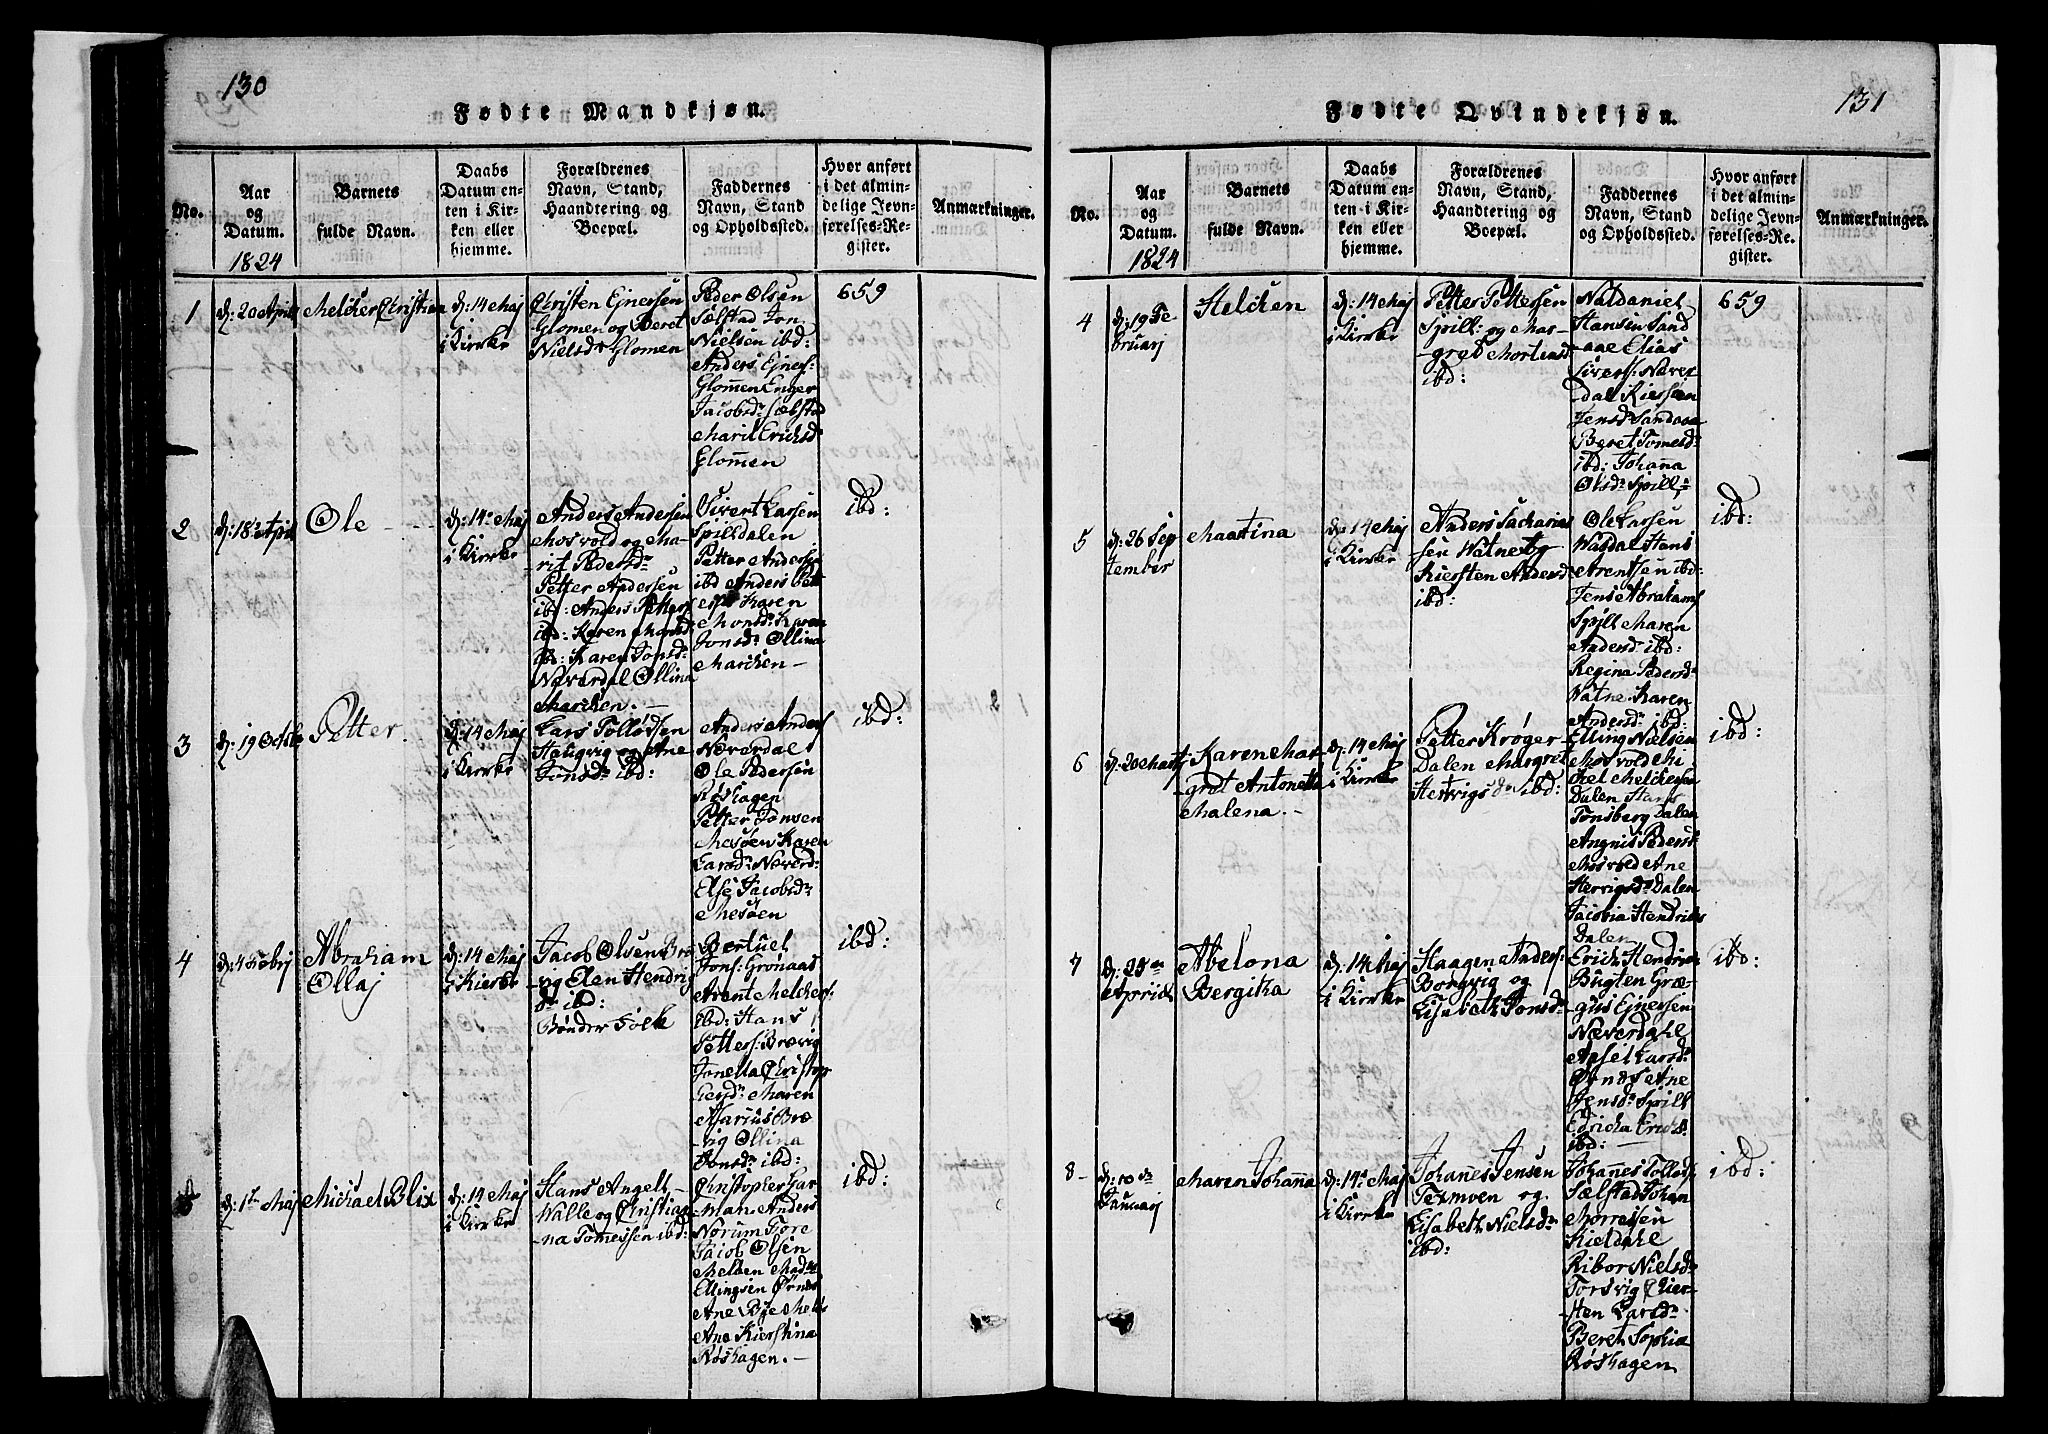 130
Fødte Mandkjøn.
No.
Aar
og
Datum.
1824
Barnets
fulde Navn.
Daabs
Datum en-
ten i Kir-
ken eller
hjemme.
Forældrenes
Navn, Stand,
Haandtering og
Boepæl.
Faddernes
Navn, Stand
og Opholdssted.
Hvor anført
i det almin-
delige Jevn-
førelses-Re-
gister.
Anmærkninger.
1
d: 20 April
Melcher Christian
d: 14 Maj
i Kirke
Christen Ejnersen
Glomen og Beret
Nielsdr Glomen
Peder Olsen
Sælstad Jon
Nielsen ibd:
Anders Ejners:
Glomen Enger
Jacobsdr Sælstad
Marit Erichsdr
Glomen
659
2
d: 18 April
Ole
d: 14 Maj
i Kirke
Anders Andersen
Mosvold og Ma-
rit Pedersdr
Petter Andersen
ibd: Anders Petters
ibd: Karen Monsd
ibd: Karen Jonsdr
Næverdal Ollina
Marchen.
Sivert Larsen
Spilldalen
Petter Andersen
ibd Anders Pett
ers Karen
Monsdr Karen
Jonsdr Ollina
Marchen
ibd:
3
d: 19 Octob
Petter.
d: 14 Maj
i Kirke
Lars Tollefsen
Haugvig og Ane
Jonsdr ibd:
Anders Anders
Næverdal
Ole Pedersen
Røshagen
Petter Jonsen
Mesøen Karen
Larsdr Næverd:
Else Jacobsdr
Mesøen
ibd:
4
Abraham
Ollaj
d: 14 Maj
i Kirke
Jacob Olsen Bræ
vig Elen Hendrig
dr ibd:
Bønder Folk
Bertuel
Jons: Grønaas
Arent Melchers:
ibd: Hans
Petters: Brævig
Jonetta Christop
hersdr Maren
Marius Bræ
vig Ollina
Jonsdr ibd:
ibd:
d: 1te Maj
Michael Blix
d: 14 Maj
i Kirke
Hans Angell
Walle og Christia-
na Tomessen ibd:
Christopher Gar
man Anders
Norum Tore
Jacob Olsen
Meløen Mad
Ellingsen Ørnes
Ane Bye Meløe
Ana Kierstina
Røshagen.
ibd:
131
Fødte Qvindekjøn.
No.
Aar
og
Datum.
1824
Barnets
fulde Navn.
Daabs
Datum en-
ten i Kir-
ken eller
hjemme.
Forældrenes
Navn, Stand,
Haandtering og
Boepæl.
Faddernes
Navn, Stand
og Opholdssted.
Hvor anført
i det almin-
delige Jevn-
førelses-Re-
gister.
Anmærkninger.
4
d: 19 Fe
bruarj
Helchen
d: 14 Maj
i Kirke
Petter Pettersen
Spill: og Mar-
gret Mortensd
ibd:
Nathaniel
Hansen Sand
aae Elias
Sivers: Næver
dal Kiersten
Jensdr Sandaae
Beret Tomesdr
ibd: Johanna
Olsdr Spill
659
5
d: 26 Sep
tember
Maartina
d: 14 Maj
i Kirke
Anders Sacharias
sen Watne og
Kiersten Andersd
ibd:
Ole Larsen
Wasdal Hans
Arentsen ibd:
Jens Abrahams
Spill Maren
Andersd ibd:
Regina Pedersd
Watne Karen
Andersd: ibd:
ibd:
6
d: 20 Marts
Karen Mar-
gret Antonetta
Malena.
d: 14 Maj
i Kirke
Petter Krøger
Dalen Margret
Hertvigsdr ibd:
Elling Nielsen
Mosvold Mi
chel Melchersen
Dalen Hans
Tønsberg Dalen
Angnis Pedersd
Mosvold Ane
Hervigsdr Dalen
Jacobia Hendrichs
Dalen
ibd:
7
April
Abelona
Bergitha
d: 14 Maj
i Kirke
Haagen Anders:
Borgvig og
Elisabeth Jonsdr
Erich Hendrich
Bugten Græ-
gus Ejnersen
Næverdahl
Apsel Larsdr
Ørnæs Ane
Jensdr Spill
Edricha Erichs
ibd:
ibd:
8
Januarj
Maren Johanna
d: 14 Maj
i Kirke
Johannes Jensen
Termoen og
Elisabeth Nielsdr
ibd:
Johannes Tollefs
Sælstad Johan
Morresen
Kieldahl
Ribor Nielsdr
Torsvig Kier-
sten Larsdr
Beret Sophia
Røshagen
ibd: